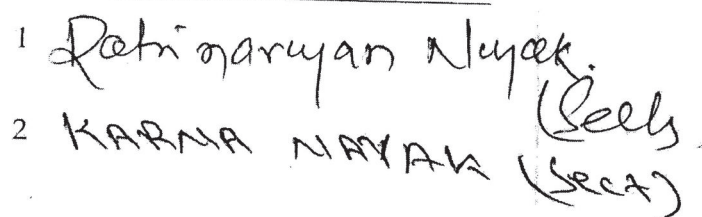 1 Ratrinarayan Nayak.
(Secty
2 KARNA NAYAK (Sect)